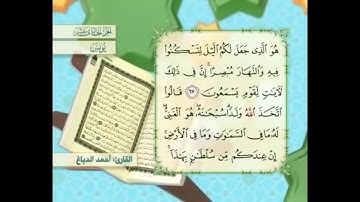 الجزء الحادي عشر
يونس
هُوَ الَّذِي جَعَلَ لَكُمُ الَّيْلَ لِتَسْكُنُوا
فِيهِ وَالنَّهَارَ مُبْصِرًا إِنَّ فِي ذَلِكَ
لَآيَاتٍ لِقَوْمٍ يَسْمَعُونَ ٦٧ قَالُوا
اتَّخَذَ اللَّهُ وَلَدًا سُبْحَانَهُ هُوَ الْغَنِيُّ
لَهُ مَا فِي السَّمَاوَاتِ وَمَا فِي الْأَرْضِ
إِنْ عِندَكُم مِّن سُلْطَانٍ بِهَذَا
القارئ: أحمد الدباغ